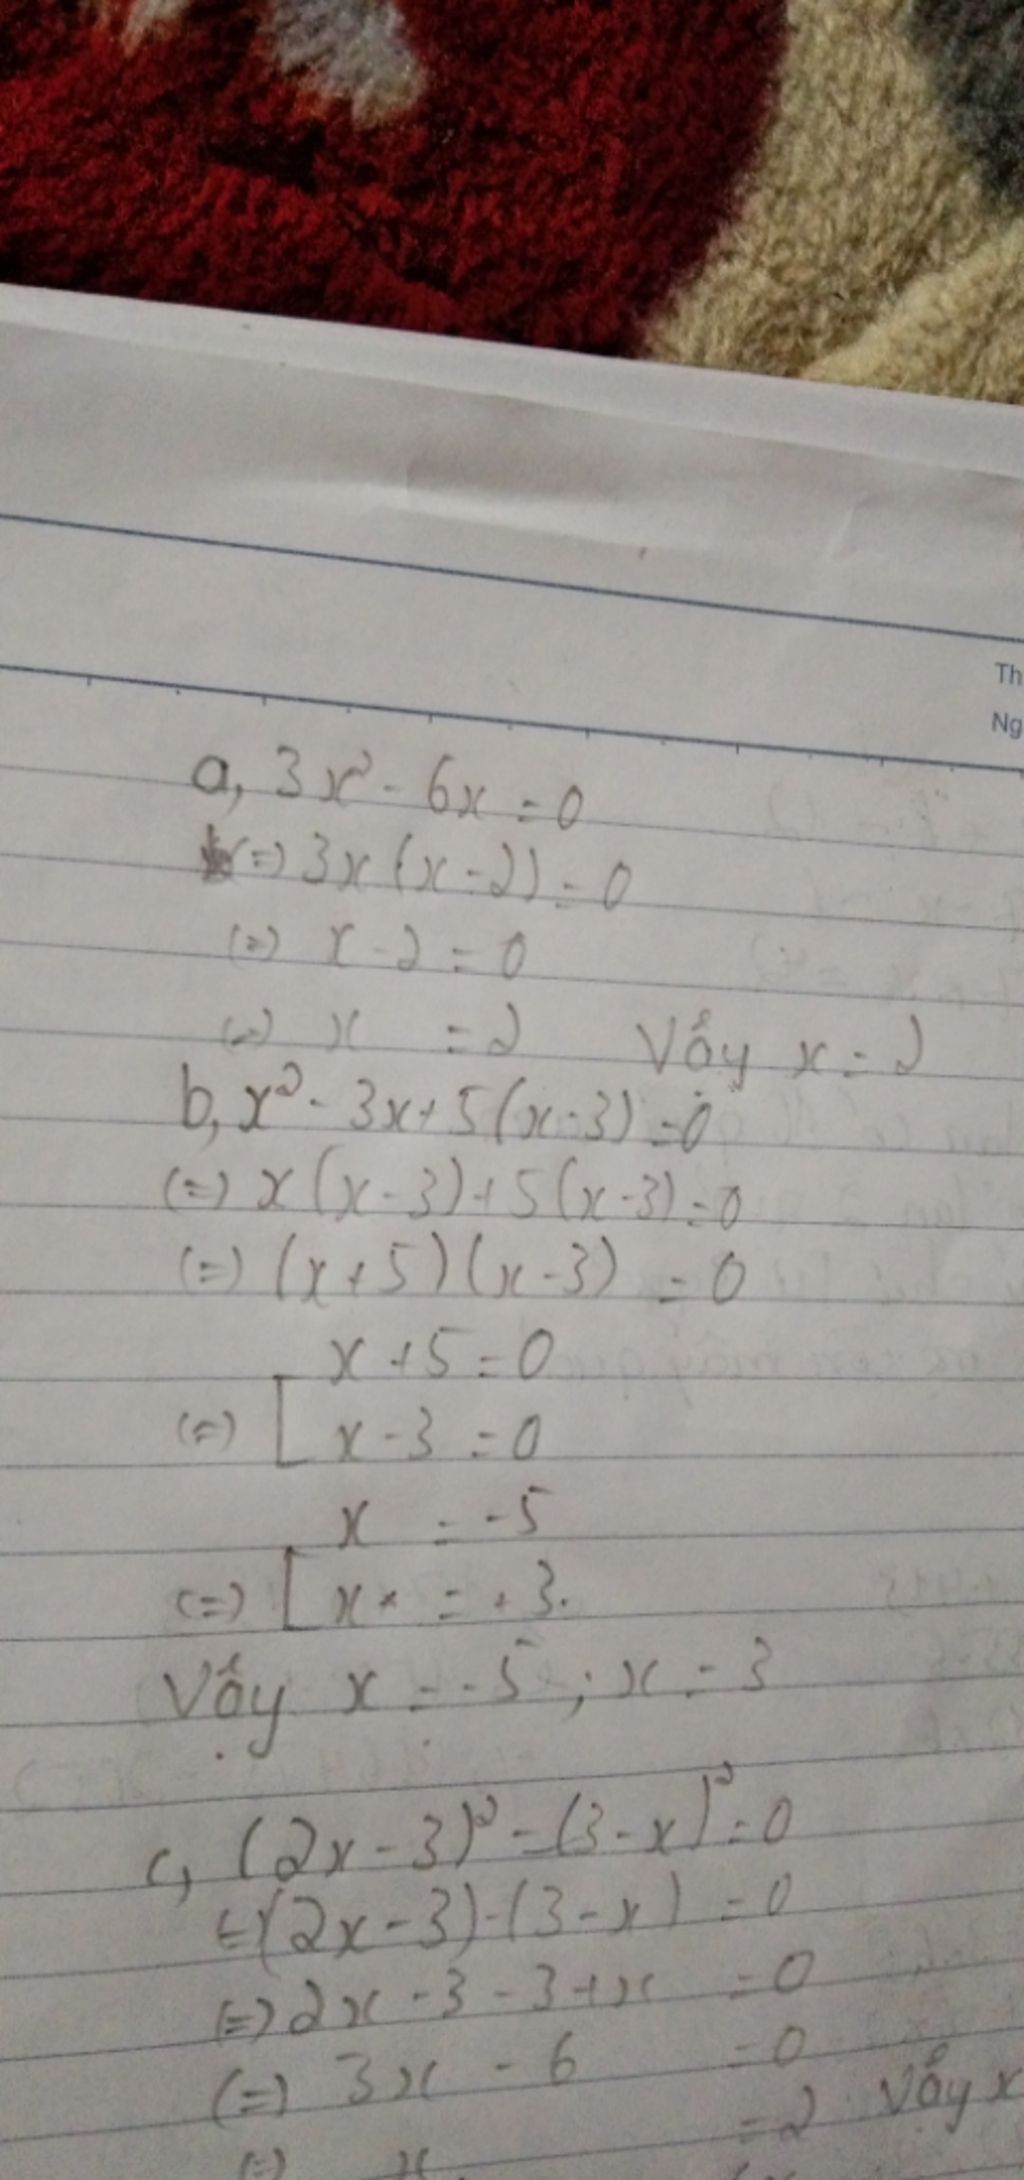 Th
Ng
a, 3x² - 6x = 0
(=) 3x(x-2) = 0
(=) x-2 = 0
(=) x = 2 Vậy x = 2
b, x² - 3x + 5(x-3) = 0
(=) x(x-3) + 5(x-3) = 0
(=) (x+5)(x-3) = 0
x + 5 = 0
(=) [ x - 3 = 0
x = -5
(=) [ x = +3.
Vậy x = -5 ; x = 3
c, (2x-3)² - (3-x)² = 0
(=) (2x-3) - (3-x) = 0
(=) 2x - 3 - 3 + x = 0
(=) 3x - 6 = 0
(=) x = 2 Vậy x